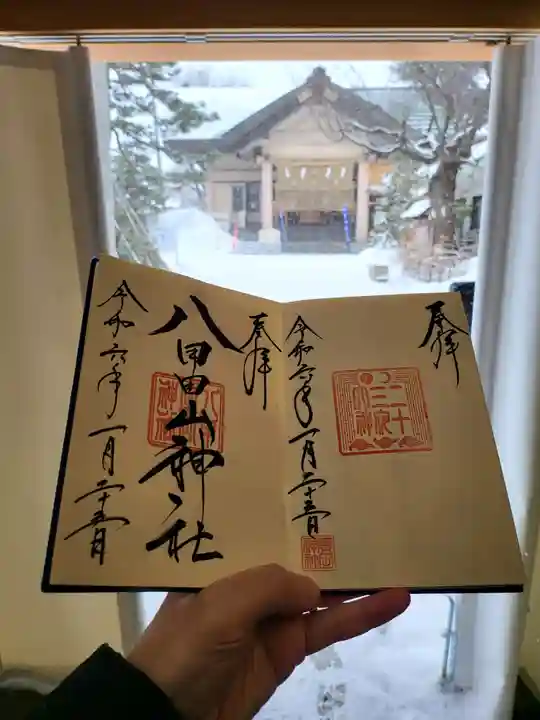 奉拝
令和六年一月二十五日
奉拝
八甲田山神社
令和六年一月二十五日